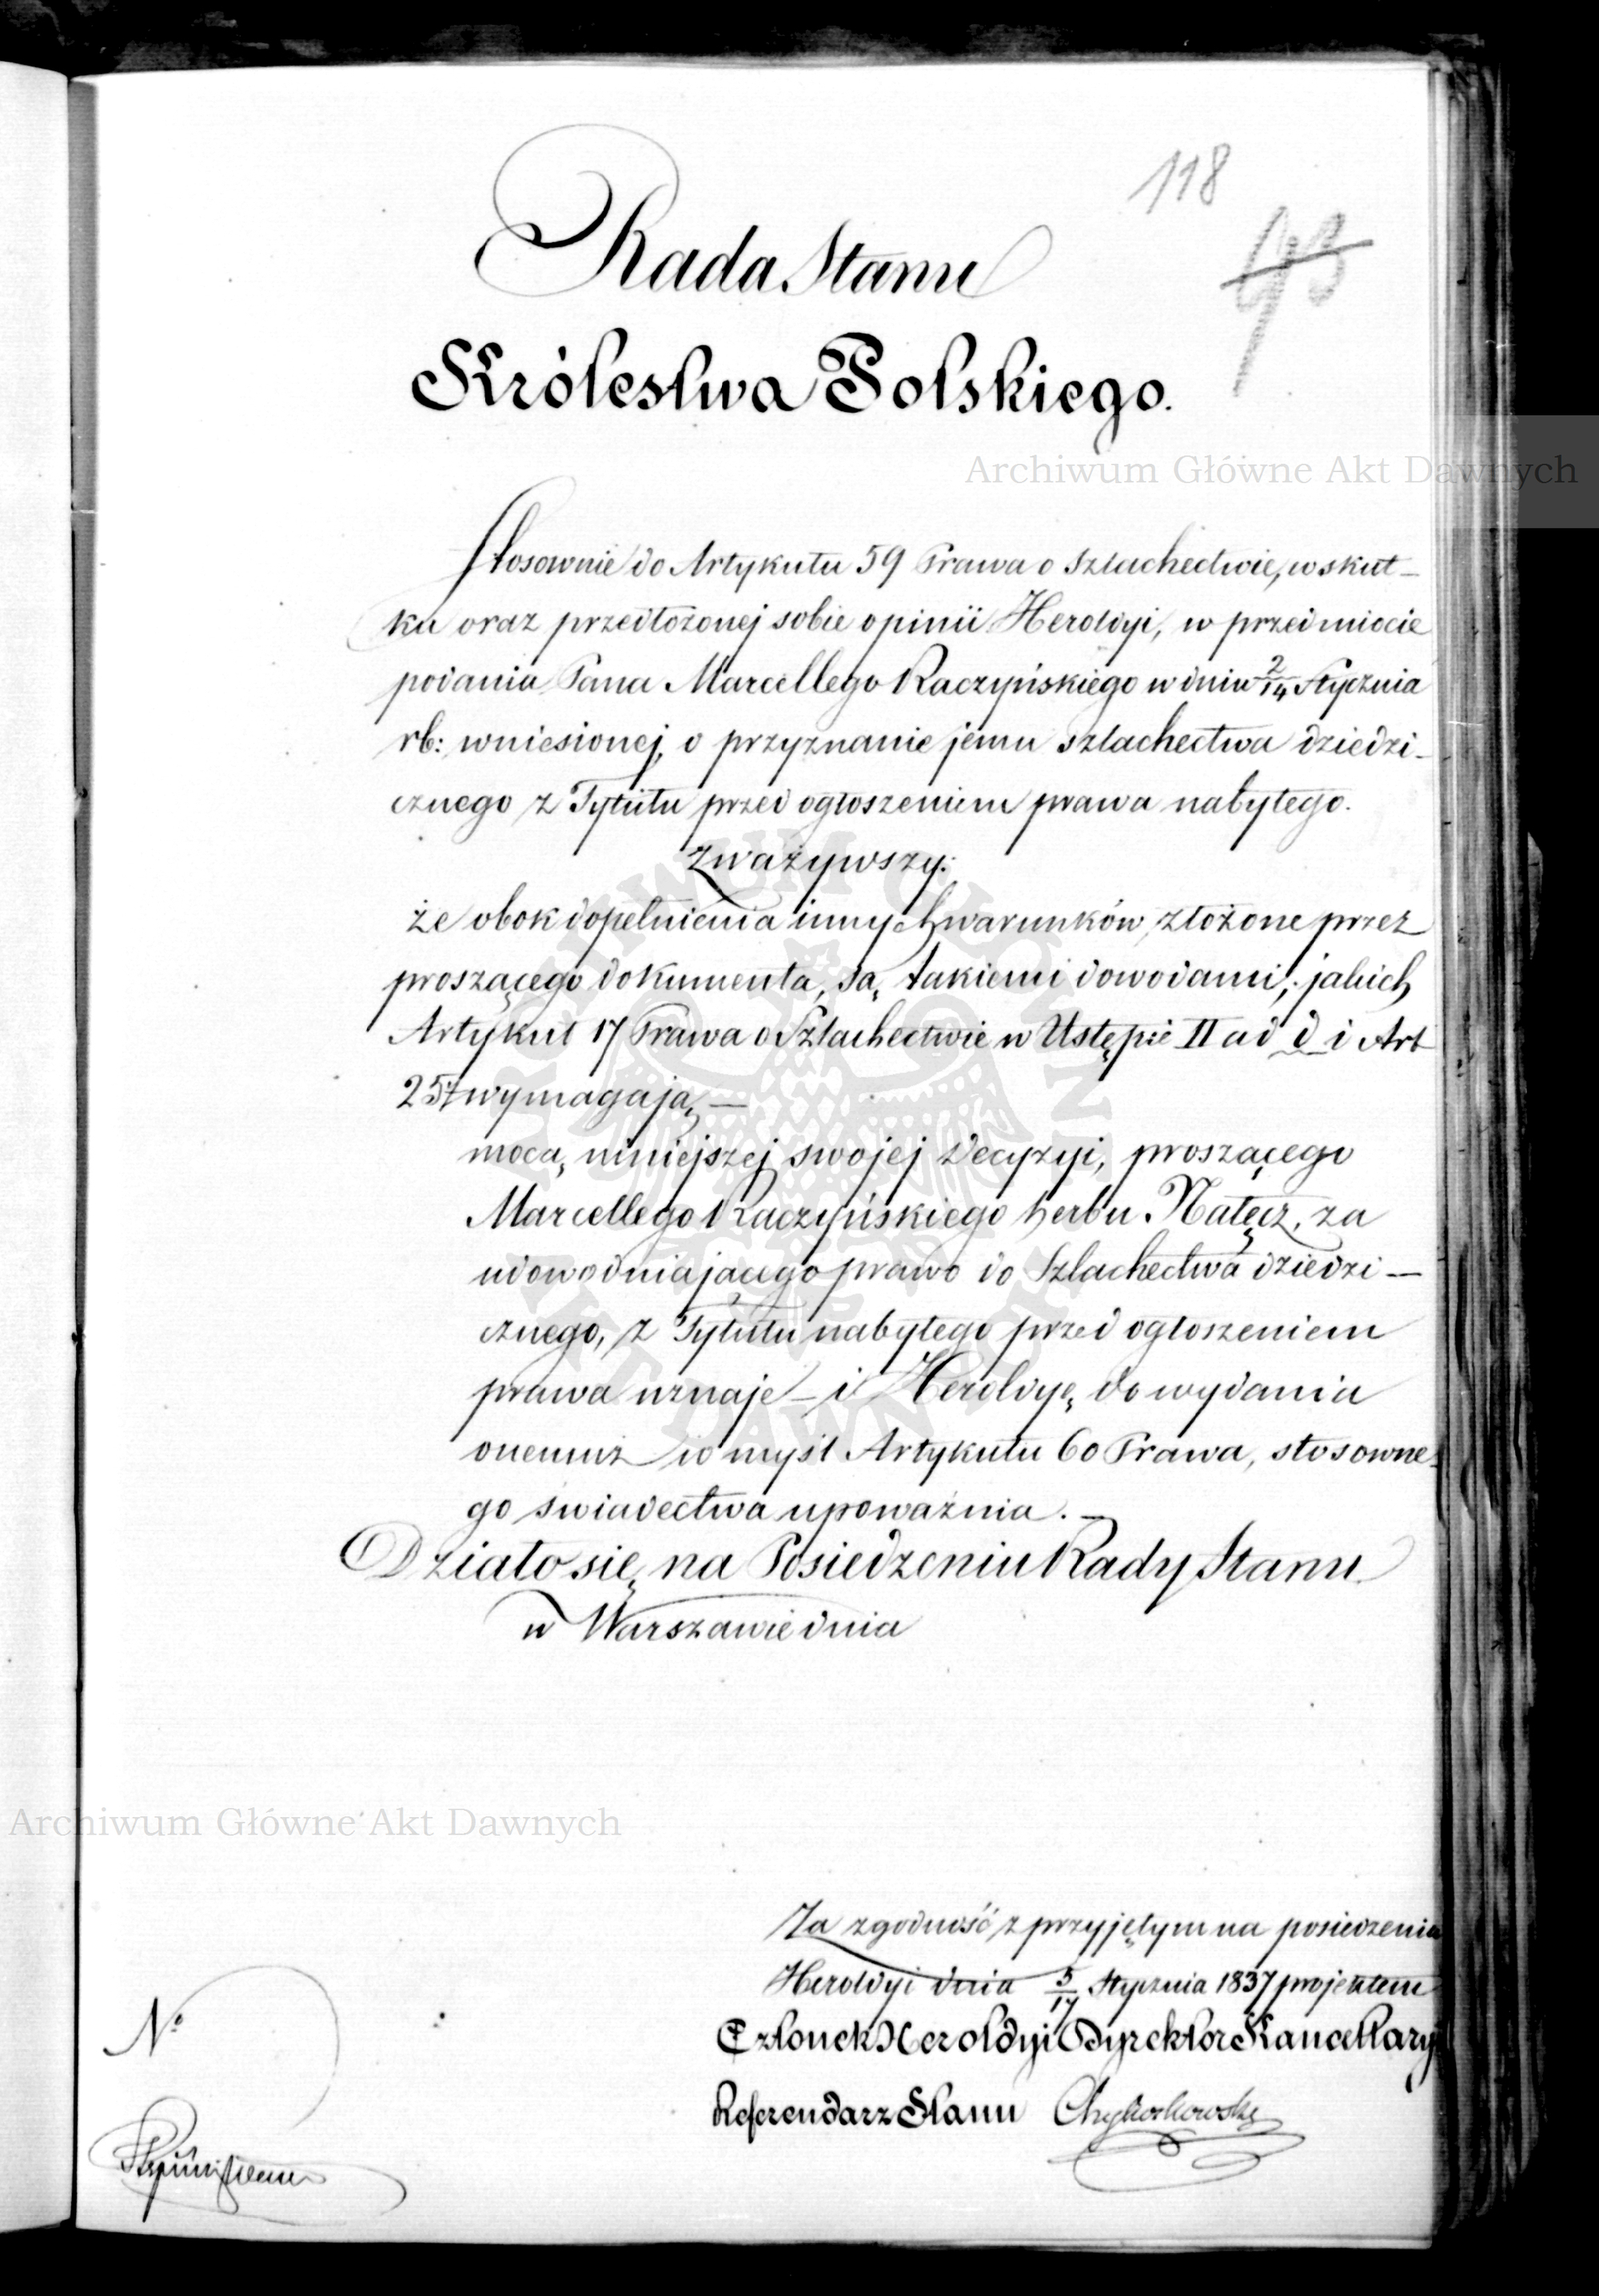 118
Rada Stanu
Królestwa Polskiego.
Archiwum Główne Akt Dawnych
Stosownie do Artykułu 59 Prawa o Szlachectwie, wskut-
ku oraz przedłożonej sobie opinii Heroldyi, w przedmiocie
podania Pana Marcellego Raczyńskiego w dniu 2/14 Stycznia
rb: wniesionej, o przyznanie jemu szlachectwa dziedzi-
cznego z Tytułu przed ogłoszeniem prawa nabytego.
Zważywszy:
że obok dopełnienia innych warunków, złożone przez
proszącego dokumenta, są takiemi dowodami, jakich
Artykuł 17 Prawa o Szlachectwie w Ustępie II ad d i Art
25 wymagają —
mocą niniejszej swojej Decyzyi, proszącego
Marcellego Raczyńskiego herbu Nałęcz, za
udowodniającego prawo do Szlachectwa dziedzi-
cznego, z Tytułu nabytego przed ogłoszeniem
prawa uznaje — i Heroldyę do wydania
onemuż w myśl Artykułu 60 Prawa, stosowne-
go świadectwa upoważnia. —
Działo się na Posiedzeniu Rady Stanu
w Warszawie dnia
Archiwum Główne Akt Dawnych
Za zgodność z przyjętym na posiedzeniu
Heroldyi dnia 5/17 Stycznia 1837 projektem
Członek Heroldyi Dyrektor Kancellaryi
Referendarz Stanu
No